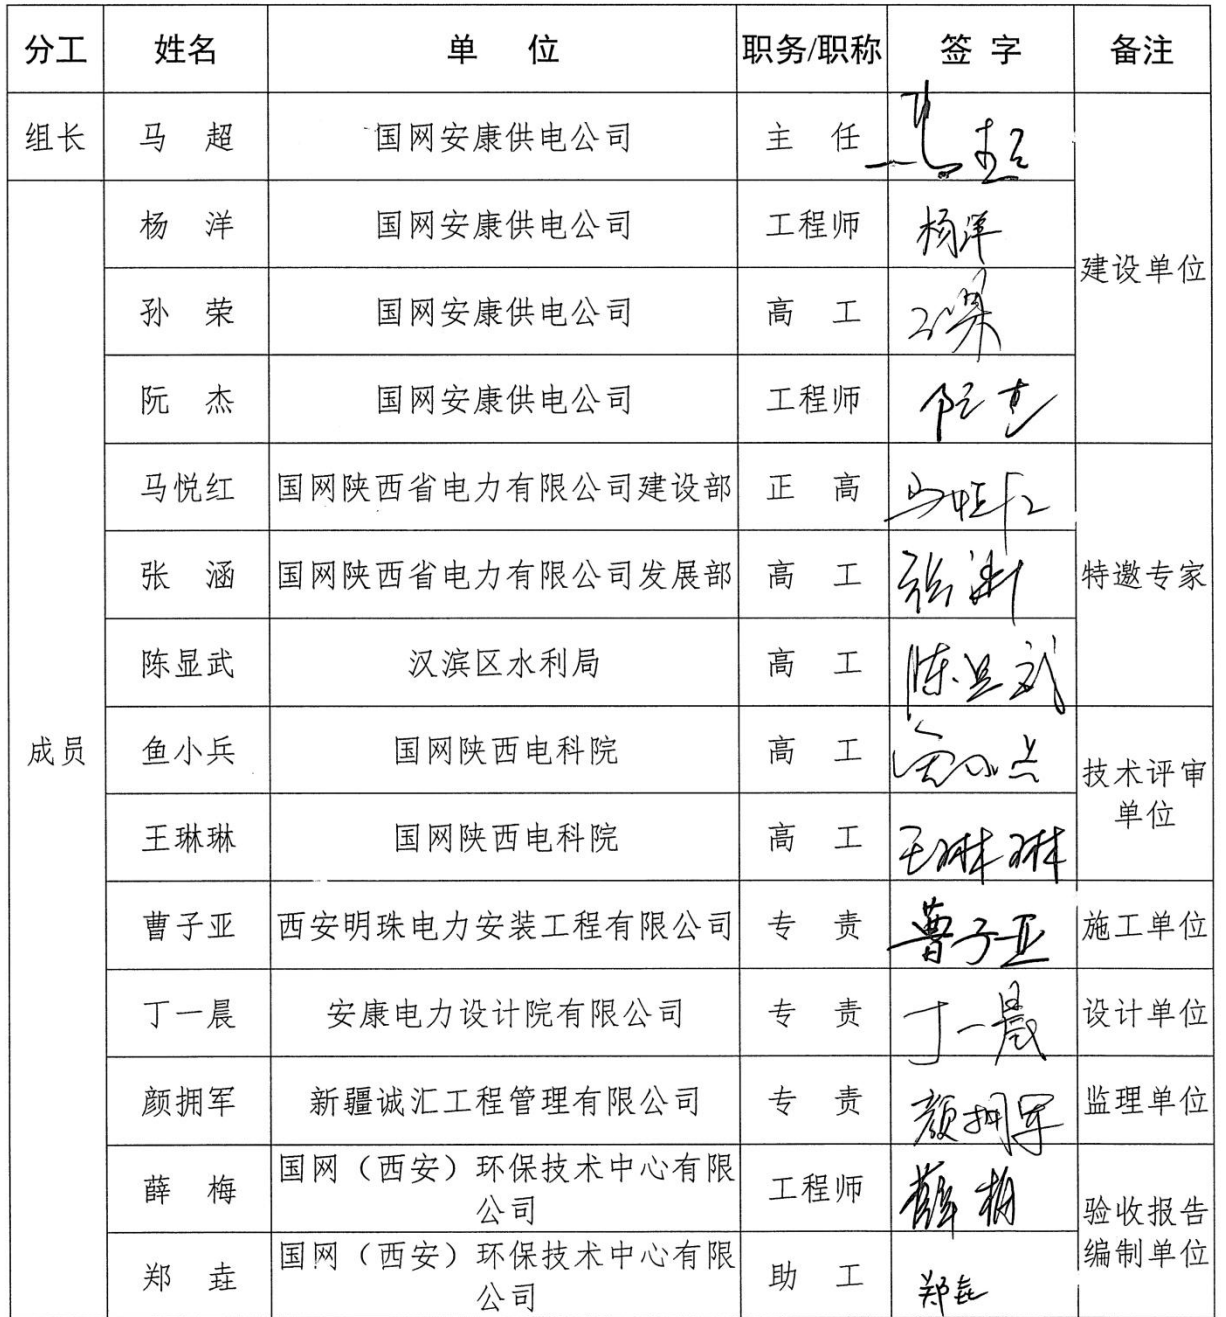 分工 姓名 单 位 职务/职称 签 字 备注
组长 马 超 国网安康供电公司 主 任 马超 建设单位
成员 杨 洋 国网安康供电公司 工程师 杨洋
孙 荣 国网安康供电公司 高 工 孙荣
阮 杰 国网安康供电公司 工程师 阮杰
马悦红 国网陕西省电力有限公司建设部 正 高 马悦红 特邀专家
张 涵 国网陕西省电力有限公司发展部 高 工 张涵
陈显武 汉滨区水利局 高 工 陈显武
鱼小兵 国网陕西电科院 高 工 鱼小兵 技术评审
单位
王琳琳 国网陕西电科院 高 工 王琳琳
曹子亚 西安明珠电力安装工程有限公司 专 责 曹子亚 施工单位
丁一晨 安康电力设计院有限公司 专 责 丁一晨 设计单位
颜拥军 新疆诚汇工程管理有限公司 专 责 颜拥军 监理单位
薛 梅 国网（西安）环保技术中心有限
公司 工程师 薛梅 验收报告
编制单位
郑 垚 国网（西安）环保技术中心有限
公司 助 工 郑垚